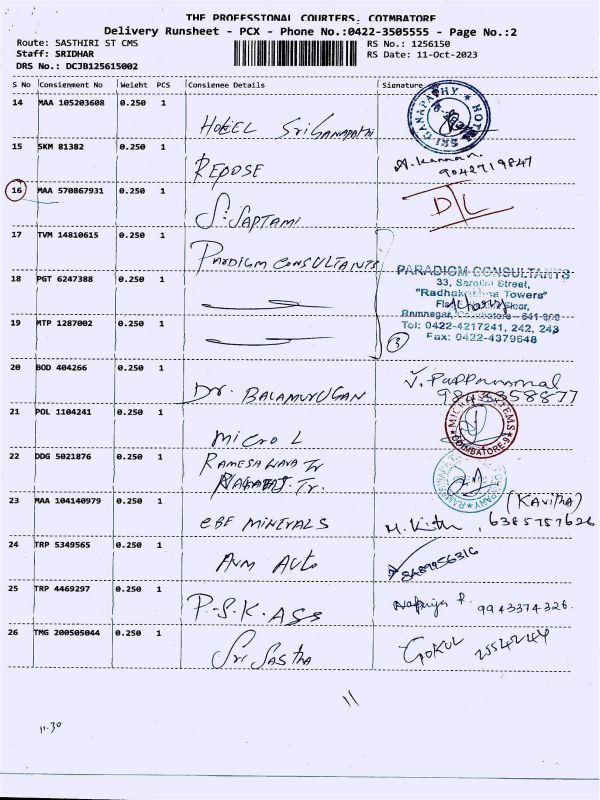 THE PROFESSTONAL COURTERS, COTMBATORE
Delivery Runsheet - PCX - Phone No.:0422-3505555 - Page No.:2
Route: SASTHIRI ST CMS
Staff: SRIDHAR
DRS No.: DCJB125615002
RS No.: 1256150
RS Date: 11-Oct-2023
S No Consignment No Weight PCS Consienee Details Signature
14 MAA 105203608 0.250 1
HOTEL Sri Ganapathi
SRI-GANAPATHY HOTEL
15 SKM 81382 0.250 1
REPOSE
A. Kannan
9042719847
16 MAA 570867931 0.250 1
S. SAPTAMI
D/L
17 TVM 14810615 0.250 1
PARDIGM CONSULTANTS
PARADIGM CONSULTANTS
33, Street,
"Radhakrishna Towers"
Floor,
Ramnagar, Coimbatore - 641 009
Tel: 0422-4217241, 242, 243
Fax: 0422-4379648
18 PGT 6247388 0.250 1
19 MTP 1287002 0.250 1
3
20 BOD 404266 0.250 1
Dr. BALAMURUGAN
J. Pappammal
9843358877
21 POL 1104241 0.250 1
MICRO L
COIMBATORE-9
22 DDG 5021876 0.250 1
RAMESH Tr
Tr.
23 MAA 104140979 0.250 1
EBF MINERALS
(Kavitha)
6385757626
24 TRP 5349565 0.250 1
AVM Auto
8489956316
25 TRP 4469297 0.250 1
P.S.K. ASS
9943374326
26 TMG 200505044 0.250 1
Sri Sastha
GOKUL
25542244
11
11.30